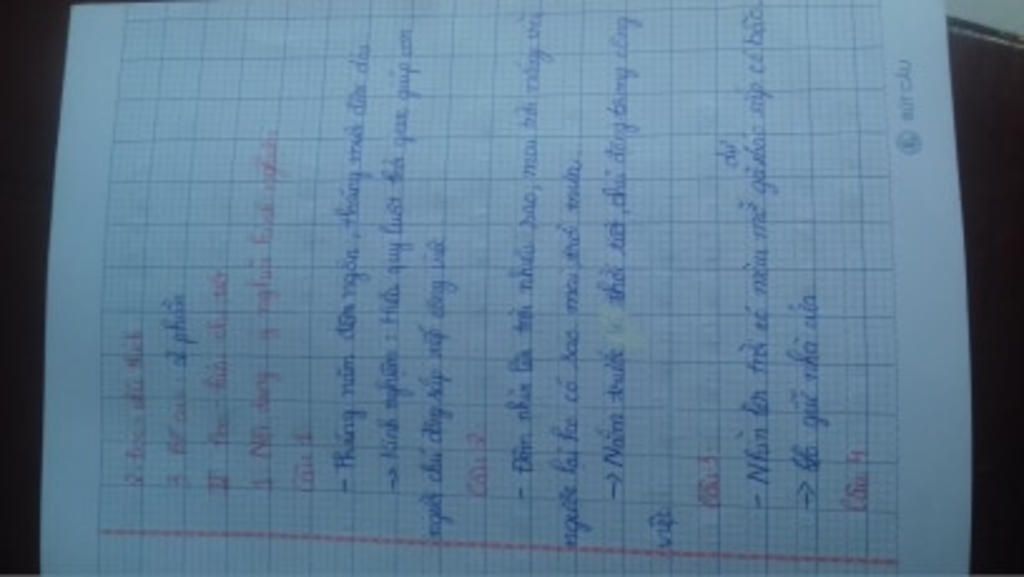 2. đọc chú thích
3. Bố cục: 2 phần
II Đọc hiểu chi tiết
1. Nội dung, ý nghĩa kinh nghiệm
Câu 1
- Tháng năm đêm ngắn, tháng mười đêm dài
-> Kinh nghiệm: Hiểu quy luật thời gian giúp con
người chủ động sắp xếp công việc
Câu 2
- Đêm nhìn lên trời nhiều sao, mai trời nắng
ngược lại ko có sao mai trời mưa
-> Nắm trước thời tiết, chủ động trong công
việc
Câu 3
- Nhìn lên trời có màu mỡ gà sắp có bão
-> giữ nhà cửa
Câu 4